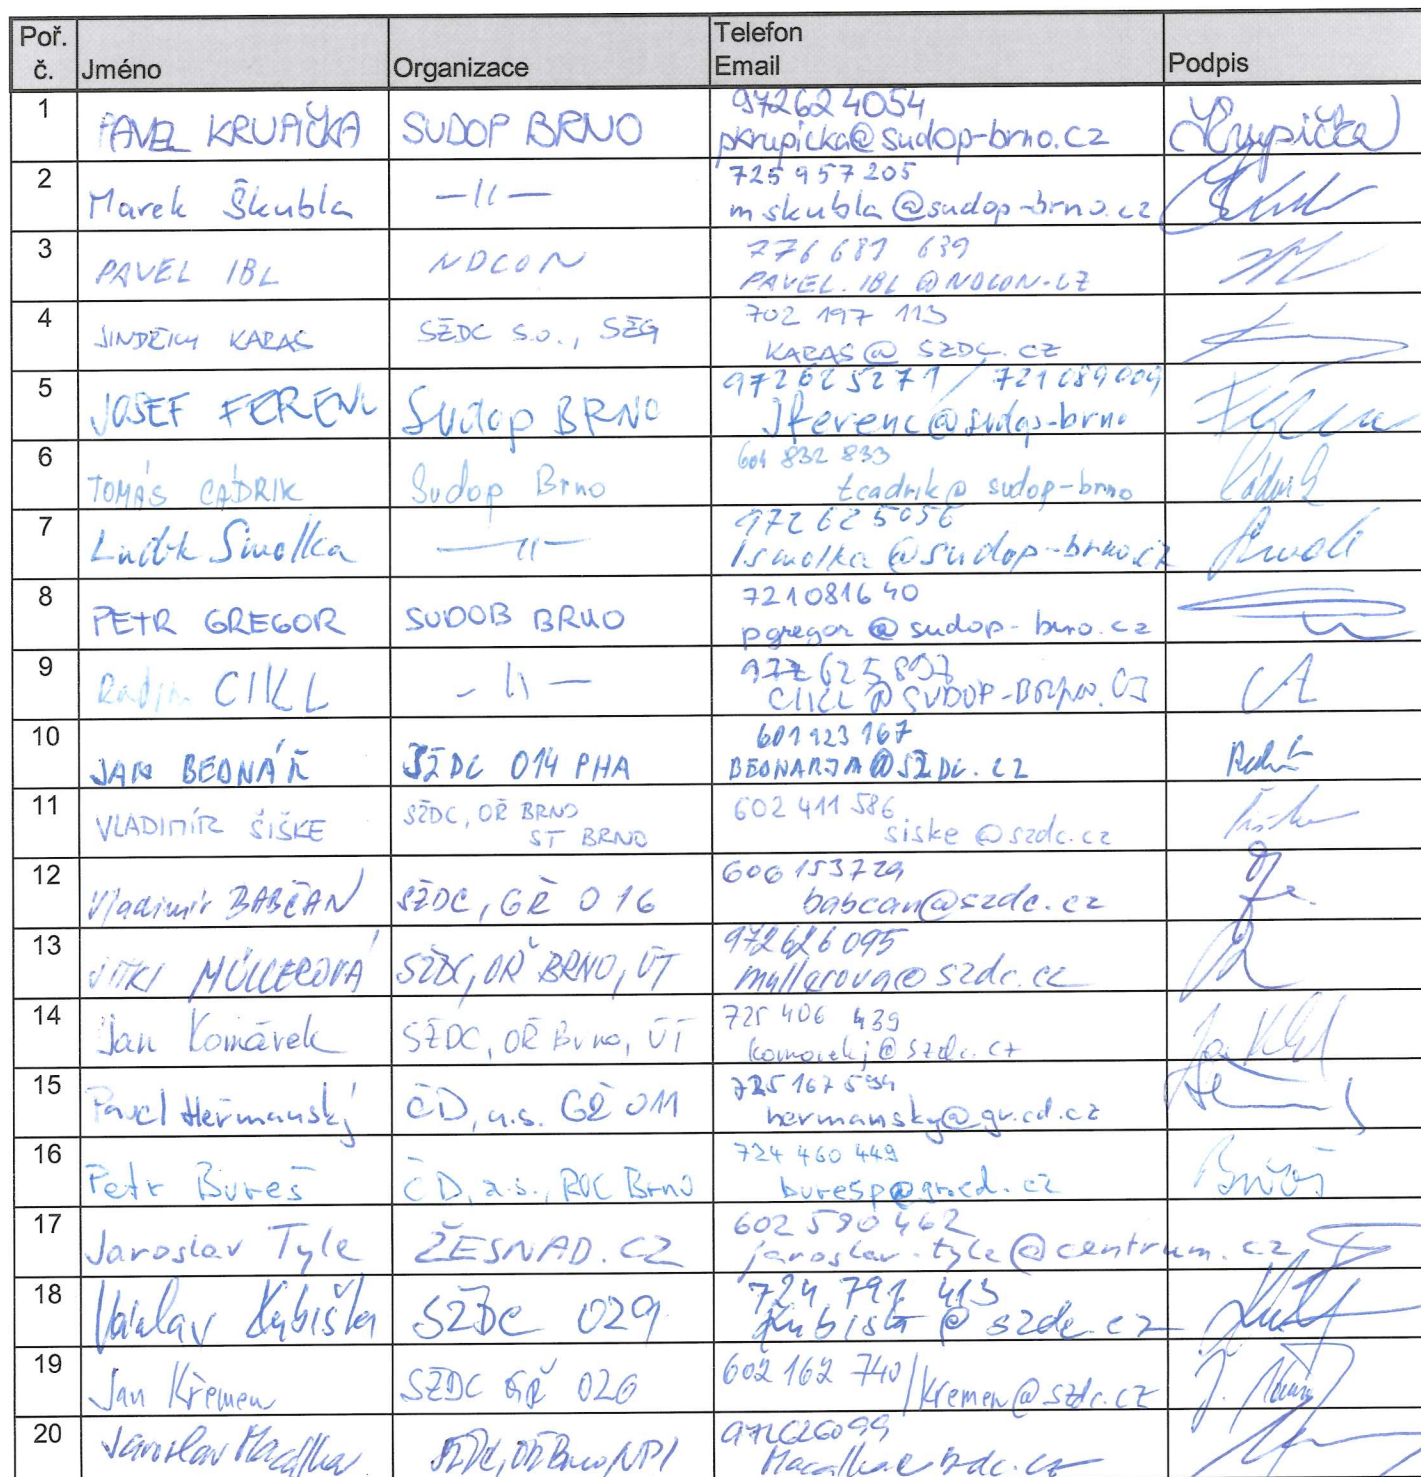 Poř. č. Jméno Organizace Telefon Email Podpis
1 PAVEL KRUPIČKA SUDOP BRNO 972624054 pkrupicka@sudop-brno.cz Krupička
2 Marek Škubla —〃— 725 957 205 mskubla@sudop-brno.cz
3 PAVEL IBL NDCON 776 681 639 PAVEL.IBL@NDCON.CZ
4 JINDŘICH KARAS SŽDC s.o., SŽG 702 197 113 KARAS@SZDC.CZ
5 JOSEF FERENC Sudop BRNO 972625271 / 721689009 Jferenc@sudop-brno
6 TOMÁŠ CÁDRIK Sudop Brno 601 832 833 tcadrik@sudop-brno
7 Luděk Smolka —〃— 972625056 lsmolka@sudop-brno.cz
8 PETR GREGOR SUDOB BRNO 721081640 pgregor@sudop-brno.cz
9 Radim CIKL —〃— 972625897 CIKL@SUDOP-BRNO.CZ
10 JAN BEDNÁŘ SŽDC O14 PHA 601123167 BEDNARJA@SŽDC.CZ
11 VLADIMÍR ŠIŠKE SŽDC, OŘ BRNO ST BRNO 602 411 586 siske@szdc.cz
12 Vladimír BABČAN SŽDC, GŘ O16 606153729 babcan@szdc.cz
13 MÜLLEROVÁ SŽDC, OŘ BRNO, ÚT 972626095 mullerova@szdc.cz
14 Jan Komárek SŽDC, OŘ Brno, ÚT 725 406 439 komarekj@szdc.cz
15 Pavel Heřmanský ČD, a.s. GŘ O11 725 167 594 hermansky@gr.cd.cz
16 Petr Bureš ČD, a.s., ROC Brno 724 460 449 buresp@gr.cd.cz Bureš
17 Jaroslav Tyle ŽESNAD.CZ 602 590 462 jaroslav.tyle@centrum.cz
18 Václav Kubišta SŽDC O29 724 791 413 Kubista@szdc.cz
19 Jan Křemen SŽDC GŘ O26 602 162 740 / Kremen@szdc.cz
20 Jaroslav Macálka SŽDC, OŘ Brno, NPI 972626099 Macalka@szdc.cz